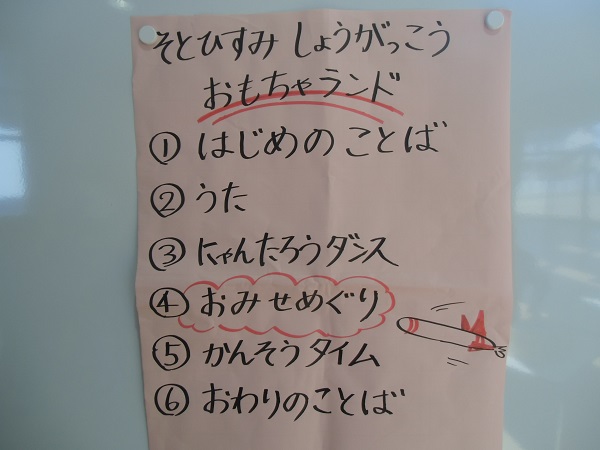 そとひすみ しょうがっこう
おもちゃランド
① はじめのことば
② うた
③ にゃんたろうダンス
④ おみせめぐり
⑤ かんそうタイム
⑥ おわりのことば